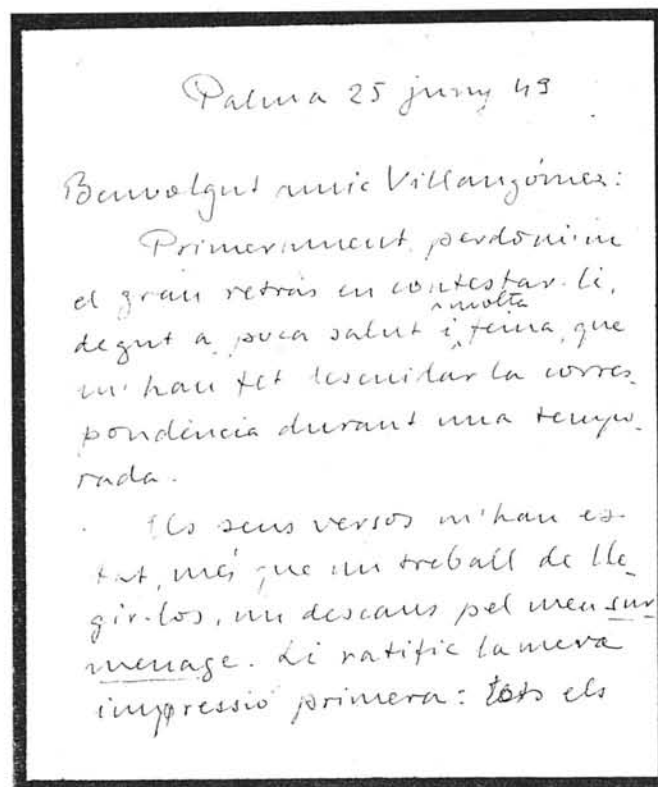 Palma 25 juny 49
Benvolgut amic Villangómez:
Primerament, perdoni'm
el gran retràs en contestar-li,
degut a poca salut i molta feina, que
m'han fet descuidar la corres-
pondència durant una tempo-
rada.
Els seus versos m'han es-
tat, més que un treball de lle-
gir-los, un descans pel meu sur
menage. Li ratific la meva
impressió primera: tots els